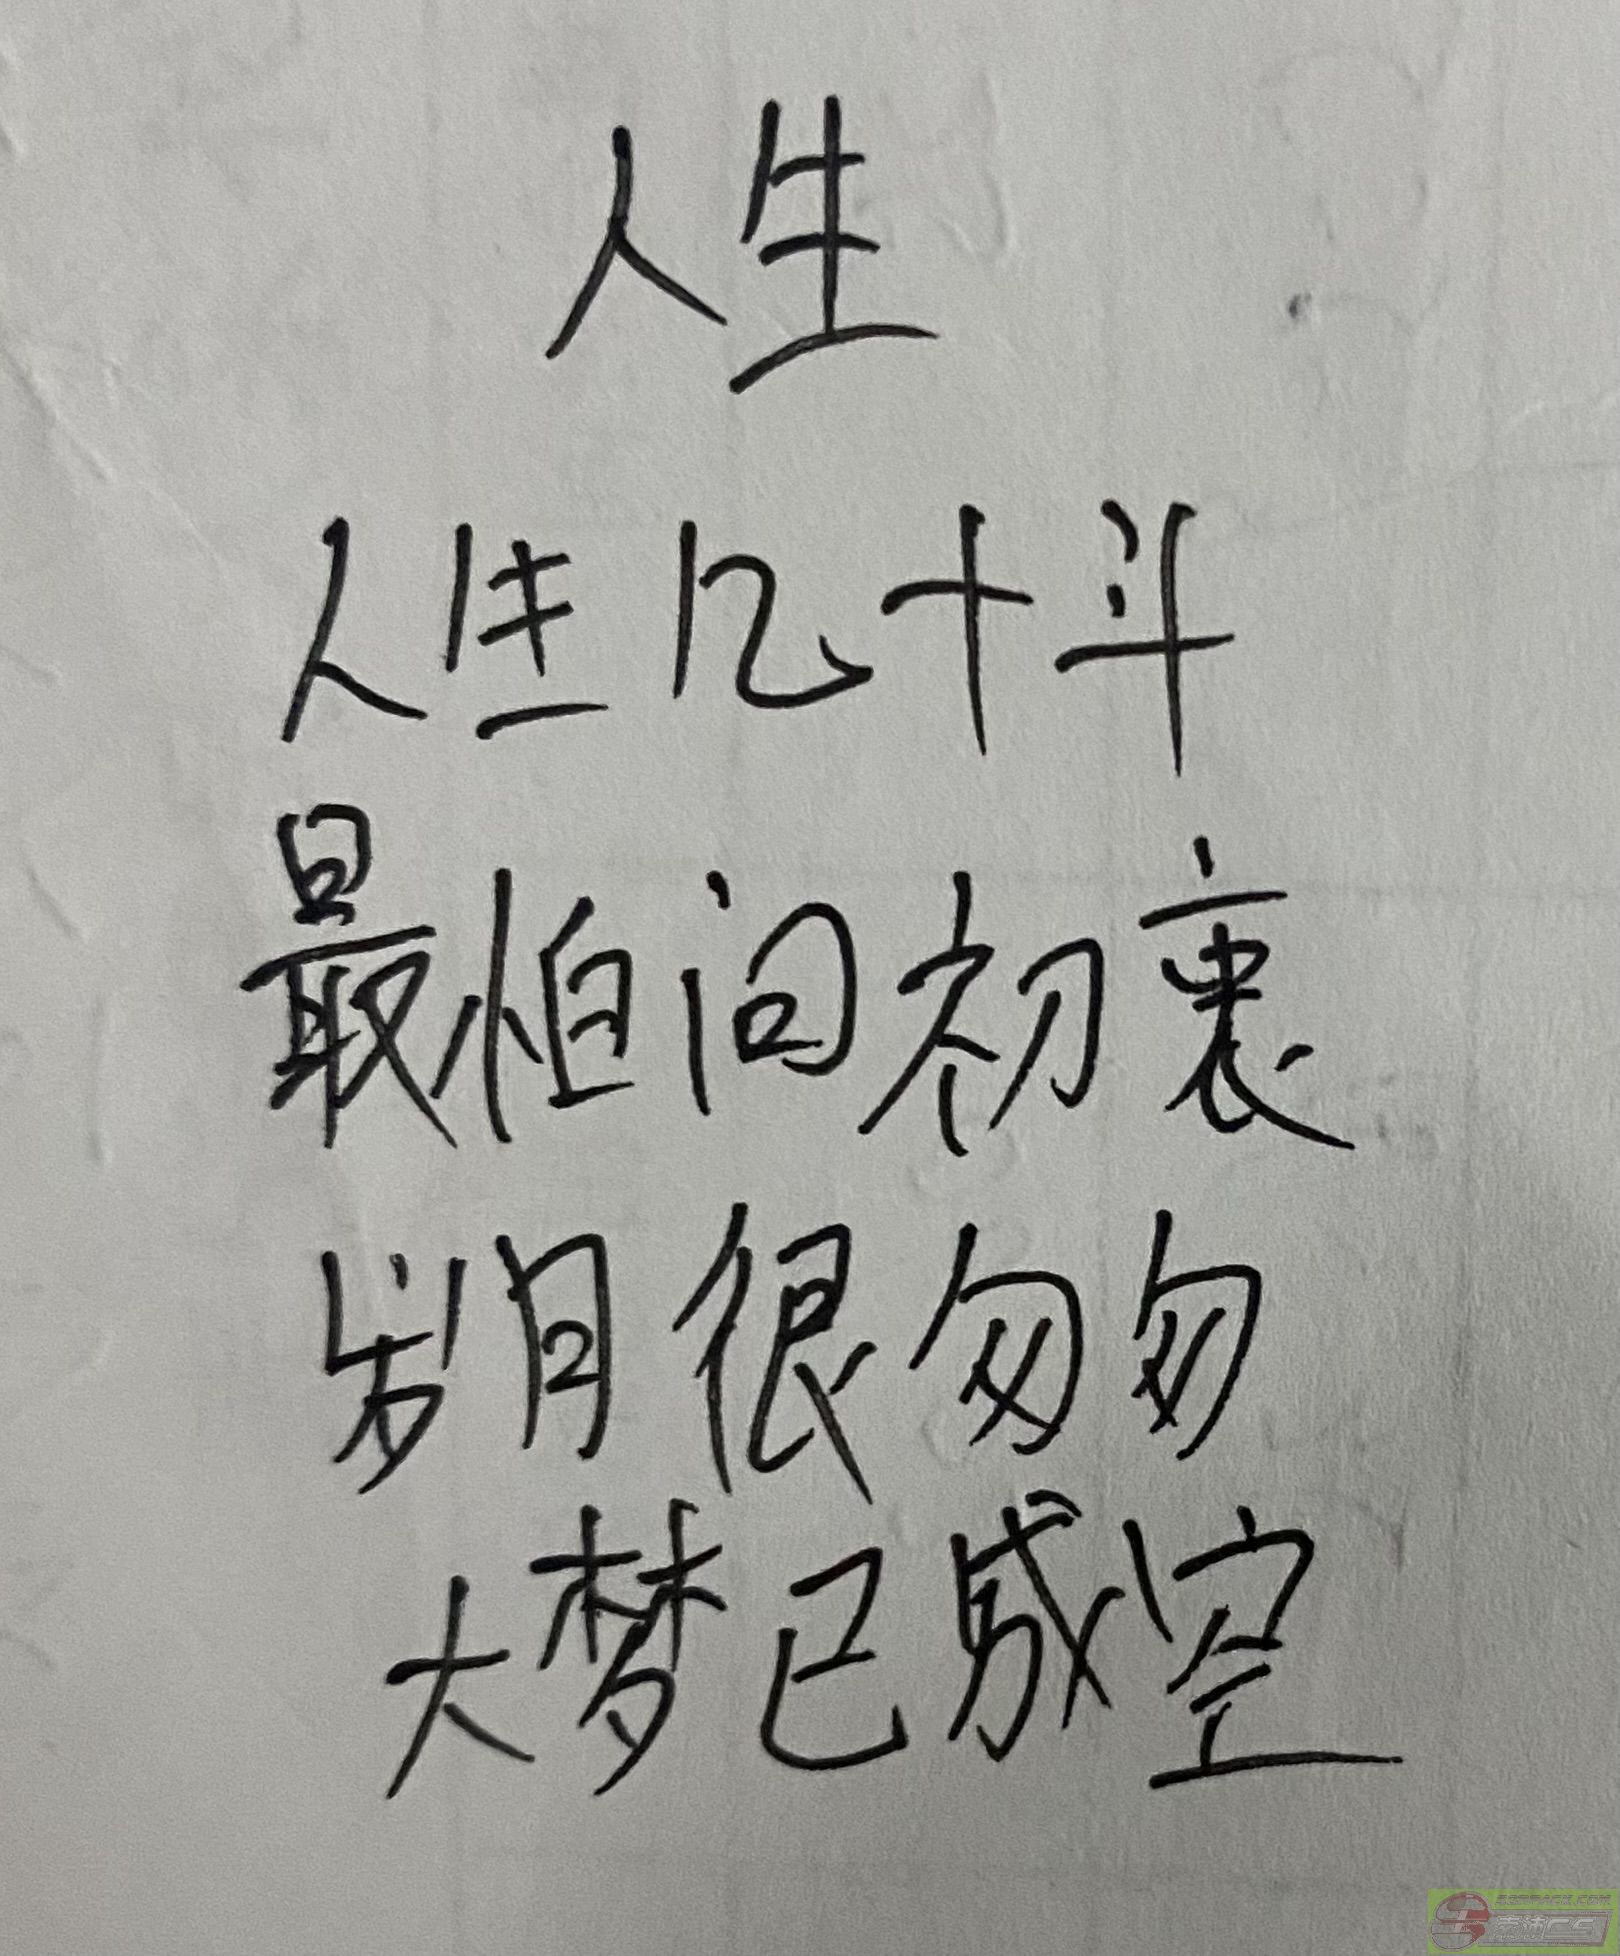 人生
人生几十斗
最怕问初衷
岁月很匆匆
大梦已成空